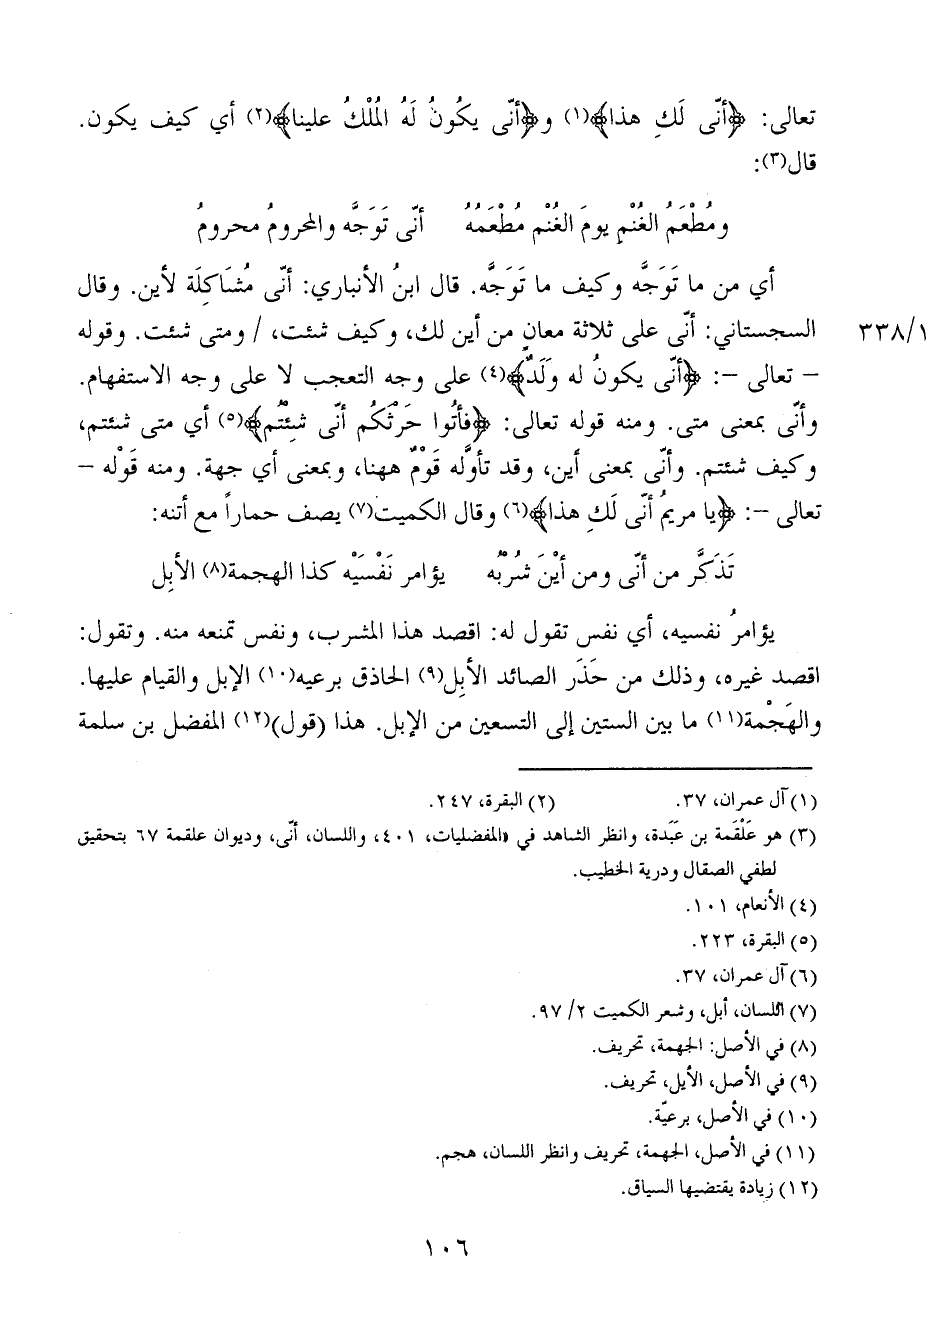 تعالى: ﴿أنّى لَكِ هذا﴾(١) و﴿أنّى يكُونُ لَهُ المُلْكُ علينا﴾(٢) أي كيف يكون.
قال(٣):
ومُطْعَمُ الغُنْمِ يومَ الغُنْمِ مُطْعَمُهُ أنّى تَوَجَّه والمحرومُ محرومُ
أي من ما تَوَجَّه وكيف ما تَوَجَّه. قال ابنُ الأنباري: أنّى مُشَاكِلَة لأين. وقال
السجستاني: أنّى على ثلاثة معانٍ من أين لك، وكيف شئت، / ومتى شئت. وقوله ٣٣٨/١
– تعالى –: ﴿أنّى يكونُ له ولَدٌ﴾(٤) على وجه التعجب لا على وجه الاستفهام.
وأنّى بمعنى متى. ومنه قوله تعالى: ﴿فأتُوا حَرْثَكُم أنّى شِئْتُم﴾(٥) أي متى شئتم،
وكيف شئتم. وأنّى بمعنى أين، وقد تأوَّله قَوْمٌ ههنا، وبمعنى أي جهة. ومنه قوْله –
تعالى –: ﴿يا مريمُ أنّى لَكِ هذا﴾(٦) وقال الكميت(٧) يصف حماراً مع أتنه:
تَذَكَّر من أنّى ومن أيْنَ شُرْبُه يؤامر نَفْسَيْه كذا الهجمة(٨) الأبِل
يؤامرُ نفسيه، أي نفس تقول له: اقصد هذا المشرب، ونفس تمنعه منه. وتقول:
اقصد غيره، وذلك من حَذَر الصائد الأبِل(٩) الحاذق برعيه(١٠) الإبل والقيام عليها.
والهَجْمة(١١) ما بين الستين إلى التسعين من الإبل. هذا (قول)(١٢) المفضل بن سلمة
(١) آل عمران، ٣٧. (٢) البقرة، ٢٤٧.
(٣) هو عَلْقَمة بن عَبَدة، وانظر الشاهد في «المفضليات، ٤٠١، واللسان، أنّى، وديوان علقمة ٦٧ بتحقيق
لطفي الصقال ودرية الخطيب.
(٤) الأنعام، ١٠١.
(٥) البقرة، ٢٢٣.
(٦) آل عمران، ٣٧.
(٧) اللسان، أبل، وشعر الكميت ٢/ ٩٧.
(٨) في الأصل: الجهمة، تحريف.
(٩) في الأصل، الأيل، تحريف.
(١٠) في الأصل، برعيّة.
(١١) في الأصل، الجهمة، تحريف وانظر اللسان، هجم.
(١٢) زيادة يقتضيها السياق.
١٠٦